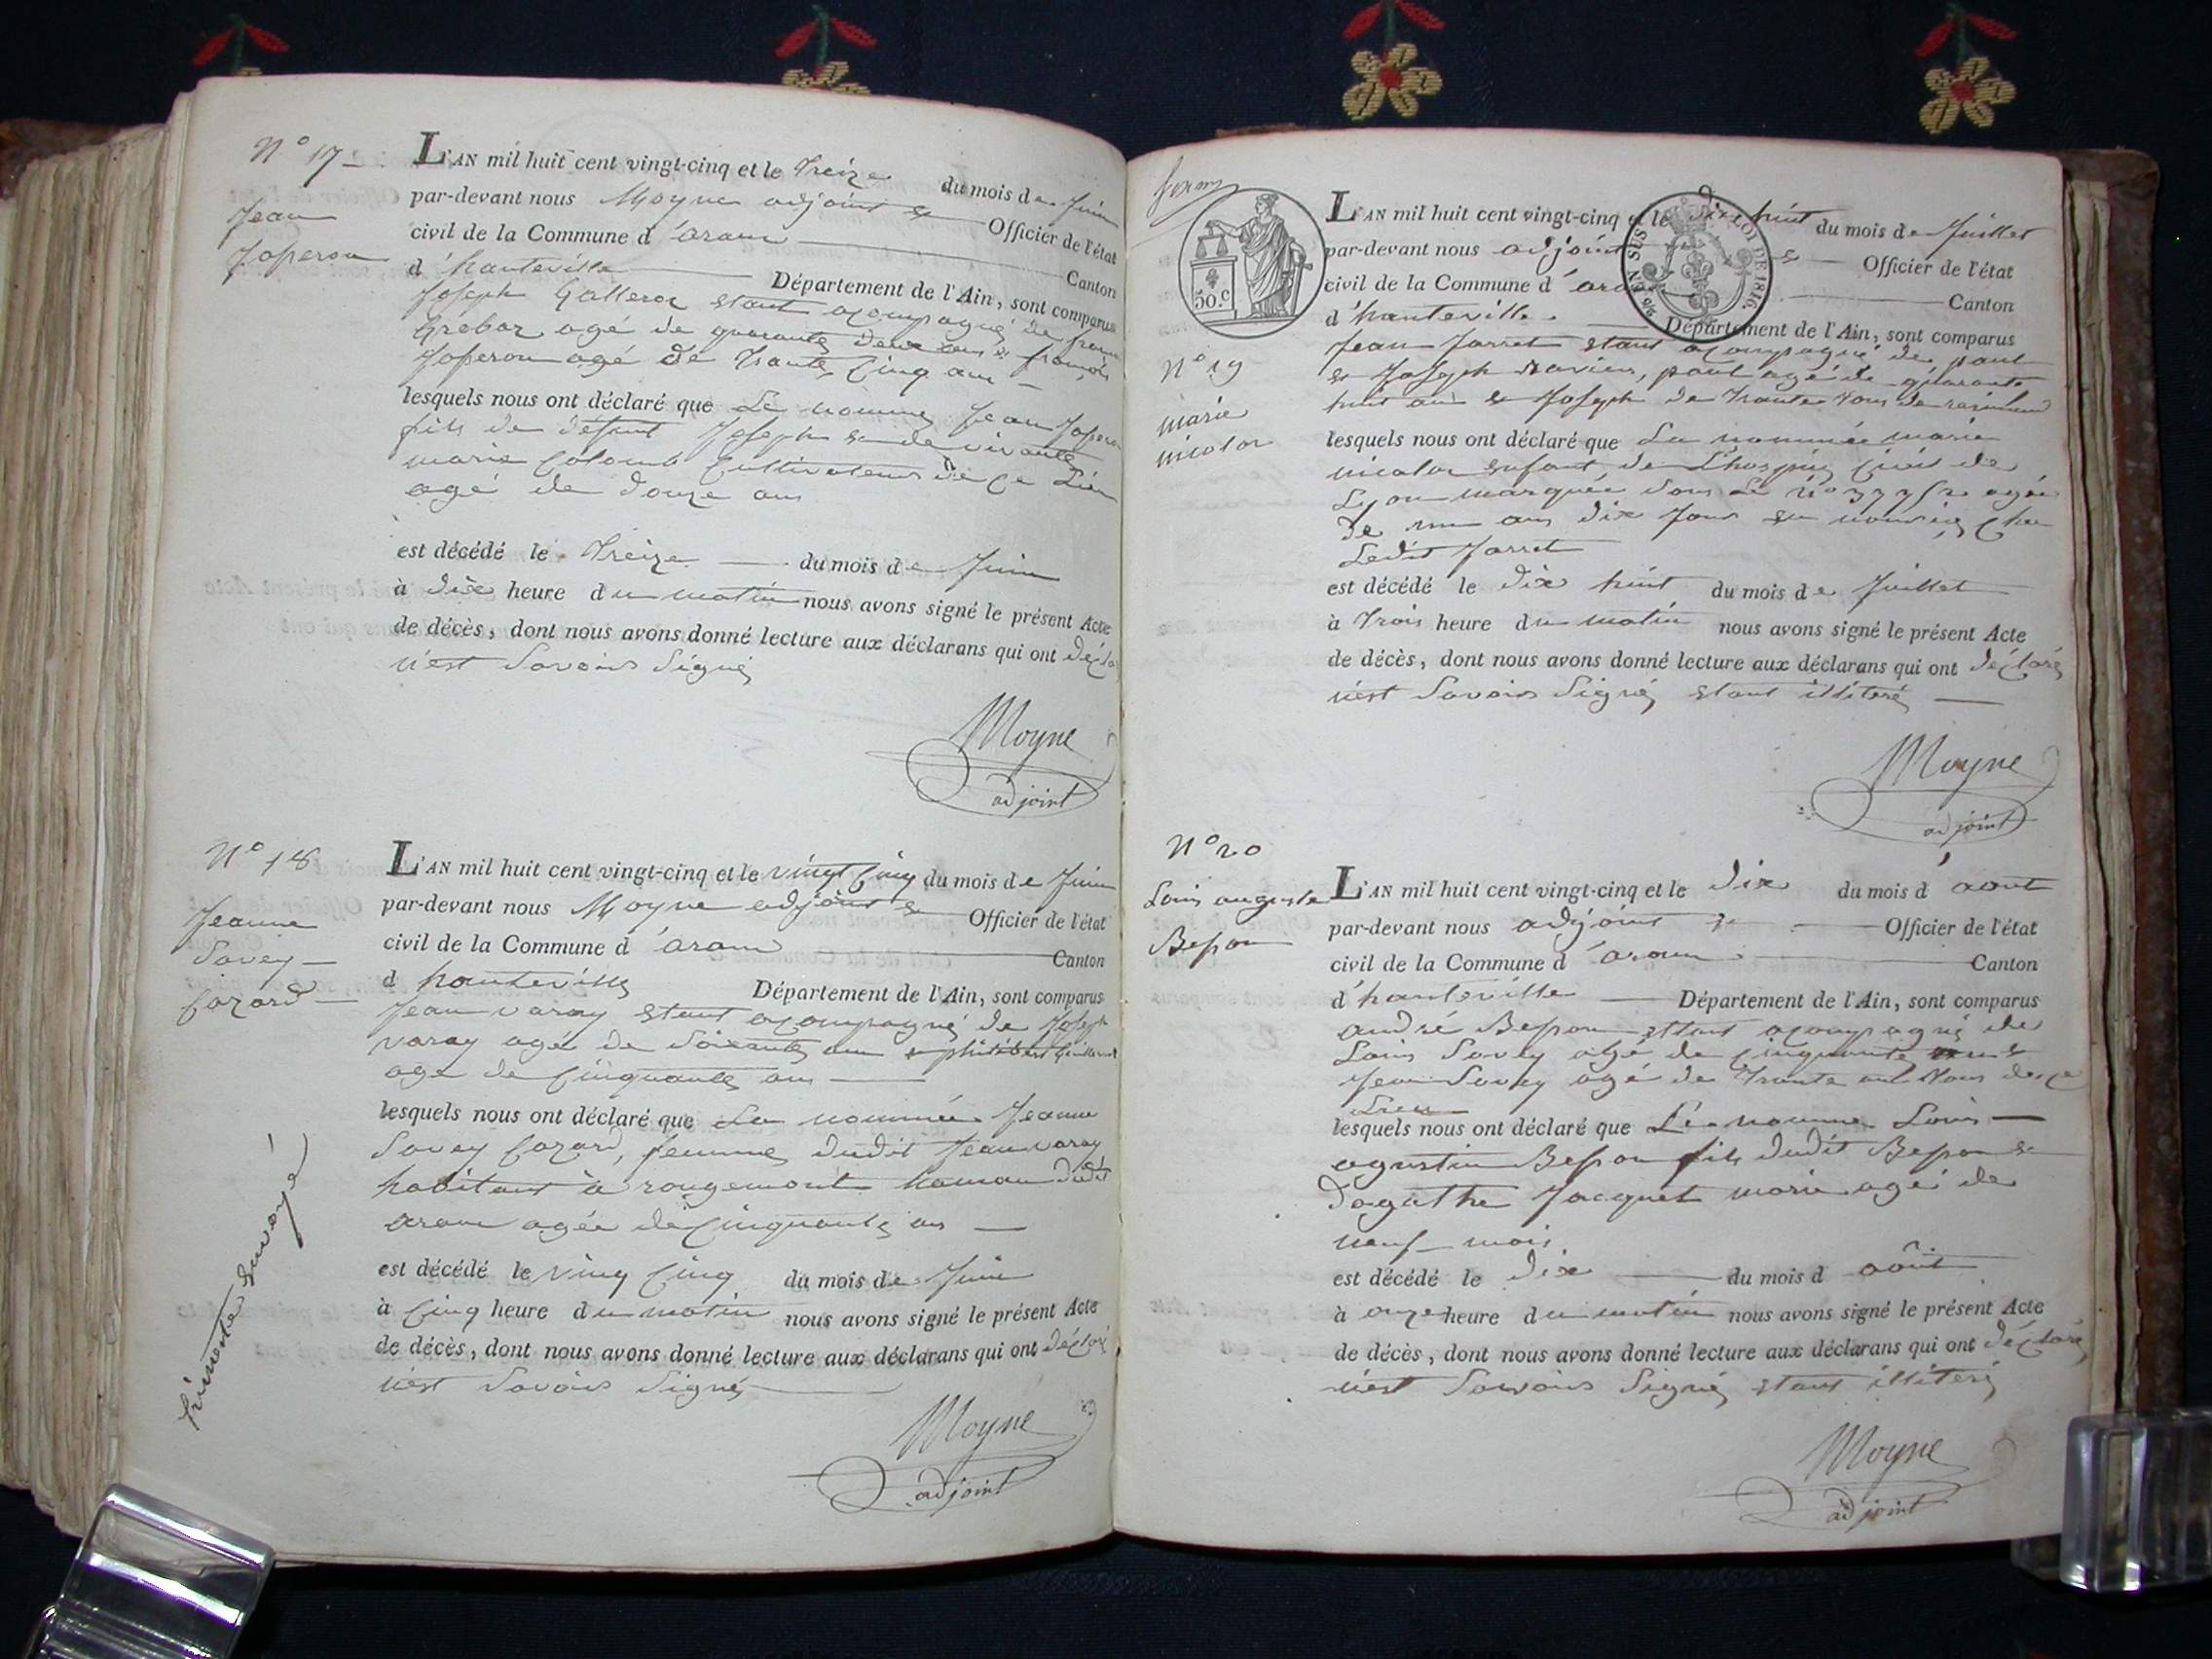 N° 17
Jean
Joperon
L'AN mil huit cent vingt-cinq et le treize du mois de Juin
par-devant nous Moyne adjoint Officier de l'état
civil de la Commune d'aranc Canton
d'hauteville Département de l'Ain, sont comparus
Joseph stant acompagné de
agé de quarante deux ans & francois
Joperon agé de trante cinq ans
lesquels nous ont déclaré que Le nommé Jean
fils de défunt Joseph & de vivante
marie Colomb Cultivateurs de Ce Lieu
agé de douze ans
est décédé le treize du mois de Juin
à dix heure du matin nous avons signé le présent Acte
de décès, dont nous avons donné lecture aux déclarans qui ont
n'est Savoir Signé
Moyne
adjoint
N° 18
Jeanne
Savey
Cozard
L'AN mil huit cent vingt-cinq et le vingt Cinq du mois de Juin
par-devant nous Moyne adjoint Officier de l'état
civil de la Commune d'aranc Canton
d hauteville Département de l'Ain, sont comparus
Jean varay stant acompagné de Joseph
varay agé de Soixante ans & philibert
age de Cinquante ans
lesquels nous ont déclaré que La nommée Jeanne
Savey Cozard, femme dudit Jean varay
habitant à rougemont hamau dudit
aranc agée de Cinquante ans
est décédé le ving Cinq du mois de Juin
à Cinq heure du matin nous avons signé le présent Acte
de décès, dont nous avons donné lecture aux déclarans qui ont déclaré
n'est Savoir Signé
Moyne
adjoint
50.C
EN SUS LOI DE 1816.
N° 19
marie
nicolas
L'AN mil huit cent vingt-cinq et le dix huit du mois de Juillet
par-devant nous adjoint Officier de l'état
civil de la Commune d' Canton
d'hauteville Département de l'Ain, sont comparus
Jean Jarret stant acompagné de paul
& Joseph paul agé de quarante
huit ans & Joseph de trante tous de
lesquels nous ont déclaré que La nommée marie
nicolas enfant de L'hospice Civil de
Lyon marquée sous Le N° agée
de un ans dix Jour en Chez
Ledit Jarret
est décédé le dix huit du mois de Juillet
à trois heure du matin nous avons signé le présent Acte
de décès, dont nous avons donné lecture aux déclarans qui ont déclaré
n'est Savoir Signé stant illiteré
Moyne
adjoint
N° 20
Louis auguste
Besson
L'AN mil huit cent vingt-cinq et le dix du mois d'aout
par-devant nous adjoint Officier de l'état
civil de la Commune d'aranc Canton
d'hauteville Département de l'Ain, sont comparus
andré Besson stant acompagné de
Louis Savey agé de Cinquante &
Jean Savey agé de trante ans tous de ce
Lieu
lesquels nous ont déclaré que Le nommé Louis
agustin Besson fils dudit Besson &
d'agathe Jacquet marie agé de
neuf mois
est décédé le dix du mois d août
à onze heure du matin nous avons signé le présent Acte
de décès, dont nous avons donné lecture aux déclarans qui ont déclaré
n'est Savoir Signé stant illiteré
Moyne
adjoint